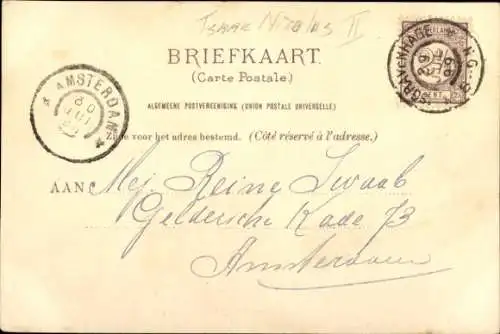 Tsaar Nicolaas II
BRIEFKAART.
(Carte Postale.)
ALGEMEENE POSTVEREENIGING (UNION POSTALE UNIVERSELLE)
Zijde voor het adres bestemd. (Côté réservé à l'adresse.)
AMSTERDAM
'S GRAVENHAGE
CENT
AAN Mej. Reine Swaab
Geldersche Kade 73
Amsterdam